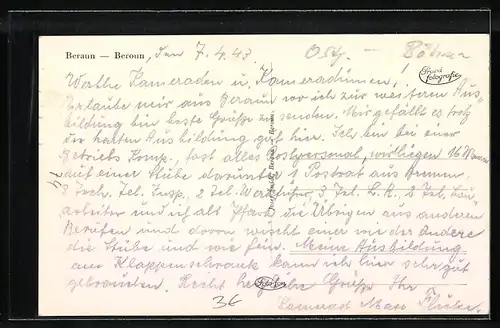 Beraun — Beroun, den 7. 4. 43
Ostj. — Böhmen
Pravá fotografie
Werthe Kameraden u. Kameradinnen!
Erlaube mir aus Beraun wo ich zur weiteren Aus-
bildung bin beste Grüße zu senden. Mir gefällt es trotz
der harten Ausbildung gut hier. Ich bin bei einer
Betriebs Komp., fast alles Postpersonal, wir liegen 16 Mann
auf einer Stube darunter 1 Postrat aus Bremen.
3 Tech. Tel. Insp., 2 Tel. Werkführer, 3 Tel. 2 Tel. Bau
arbeiter und ich als die Übrigen aus anderen
Berufen und davon wischt einer wie der andere
die Stube und wie fein. Meine Ausbildung
am Klappenschrank kann ich hier sehr gut
gebrauchen. Recht herzliche Grüße Ihr
Kamerad Max
36